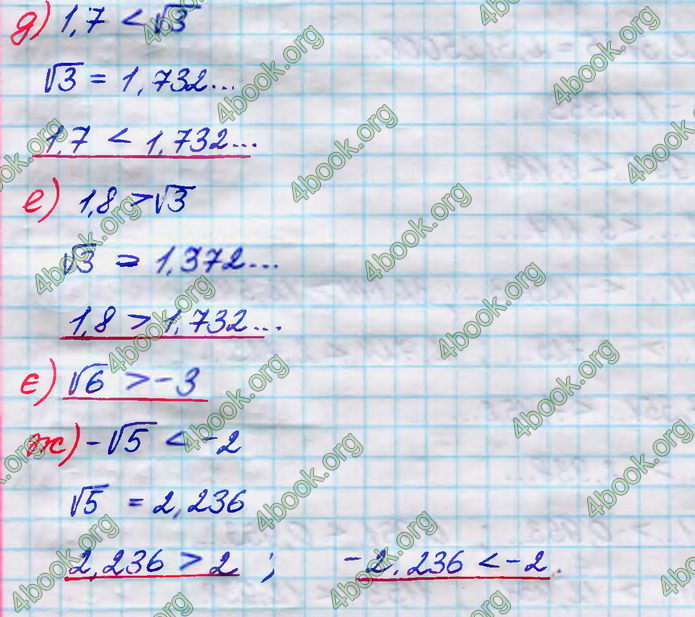 д) 1,7 < √3
√3 = 1,732...
1,7 < 1,732...
е) 1,8 > √3
√3 = 1,372...
1,8 > 1,732...
є) √6 > -3
ж) -√5 < -2
√5 = 2,236
2,236 > 2 ; -2,236 < -2.
4book.org